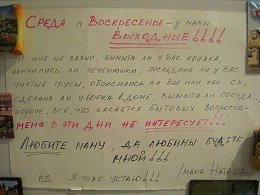 Среда и Воскресенье - у мамы
Выходные!!!!
И мне не важно, вымыта ли у вас кружка,
кончились ли печенюшки, последние ли у вас
чистые трусы, описались ли вы или обе
сделана ли уборка в доме, вымыта ли посуда
короче, все, что касается бытовых вопросов -
меня в эти дни не интересует!!!
Любите маму, да любимы будете
мной!!!
/мама Наташа/
P.S. Я тоже устаю!!!